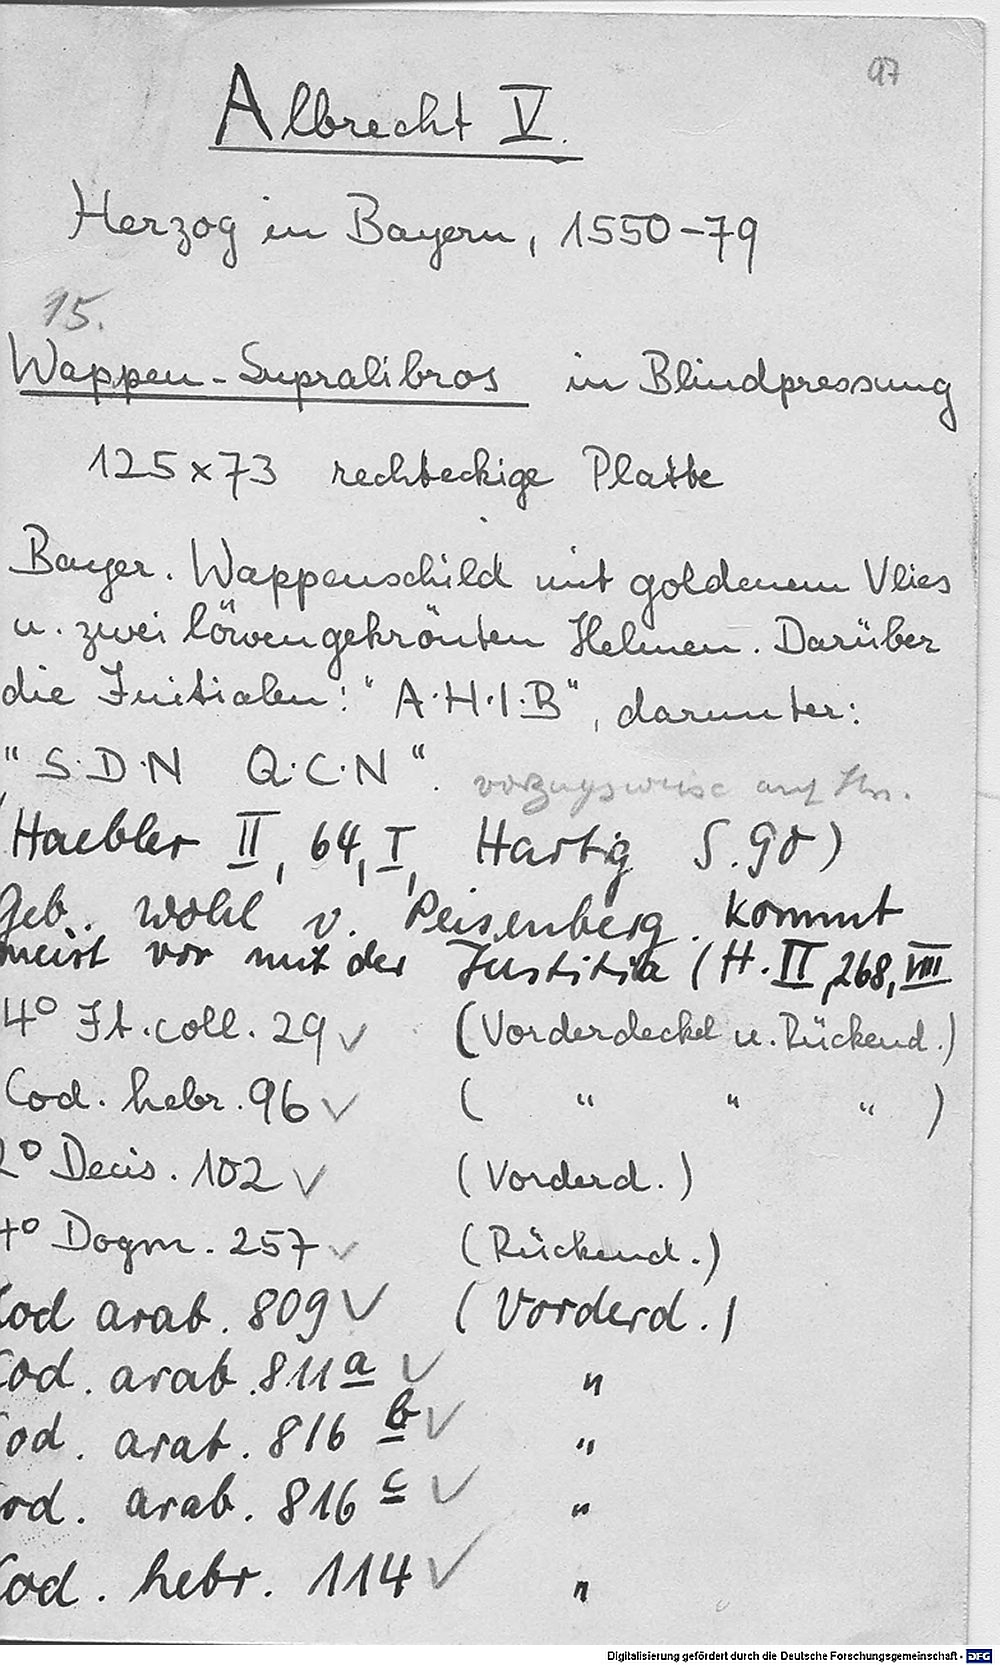 97
Albrecht V.
Herzog in Bayern, 1550-79
15.
Wappen-Supralibros in Blindpressung
125x73 rechteckige Platte
Bayer. Wappenschild mit goldenem Vlies
u. zwei löwengekrönten Helmen. Darüber
die Initialen: "A·H·I·B", darunter:
"S·D·N Q·C·N". vorzugsweise auf Hss.
(Haebler II, 64, I, Hartig S. 90)
Geb. wohl v. Peisenberg. kommt
meist vor mit der Justitia (H. II, 268, VIII
4° It. coll. 29 ✓ (Vorderdeckel u. Rückend.)
Cod. hebr. 96 ✓ ( " " " )
2° Decis. 102 ✓ (Vorderd.)
4° Dogm. 257 ✓ (Rückend.)
Cod arab. 809 ✓ (Vorderd.)
Cod. arab. 811 a ✓ "
Cod. arab. 816 b ✓ "
Cod. arab. 816 c ✓ "
Cod. hebr. 114 ✓ "
Digitalisierung gefördert durch die Deutsche Forschungsgemeinschaft - DFG